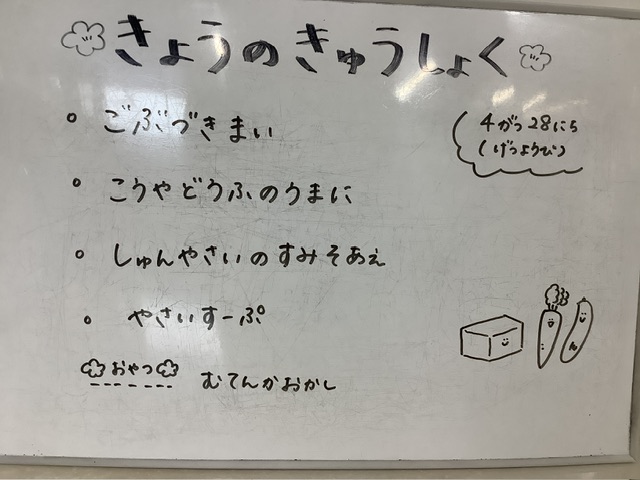 きょうのきゅうしょく
4がつ28にち
(げつようび)
・ごぶづきまい
・こうやどうふのうまに
・しゅんやさいのすみそあえ
・やさいすーぷ
おやつ むてんかおかし